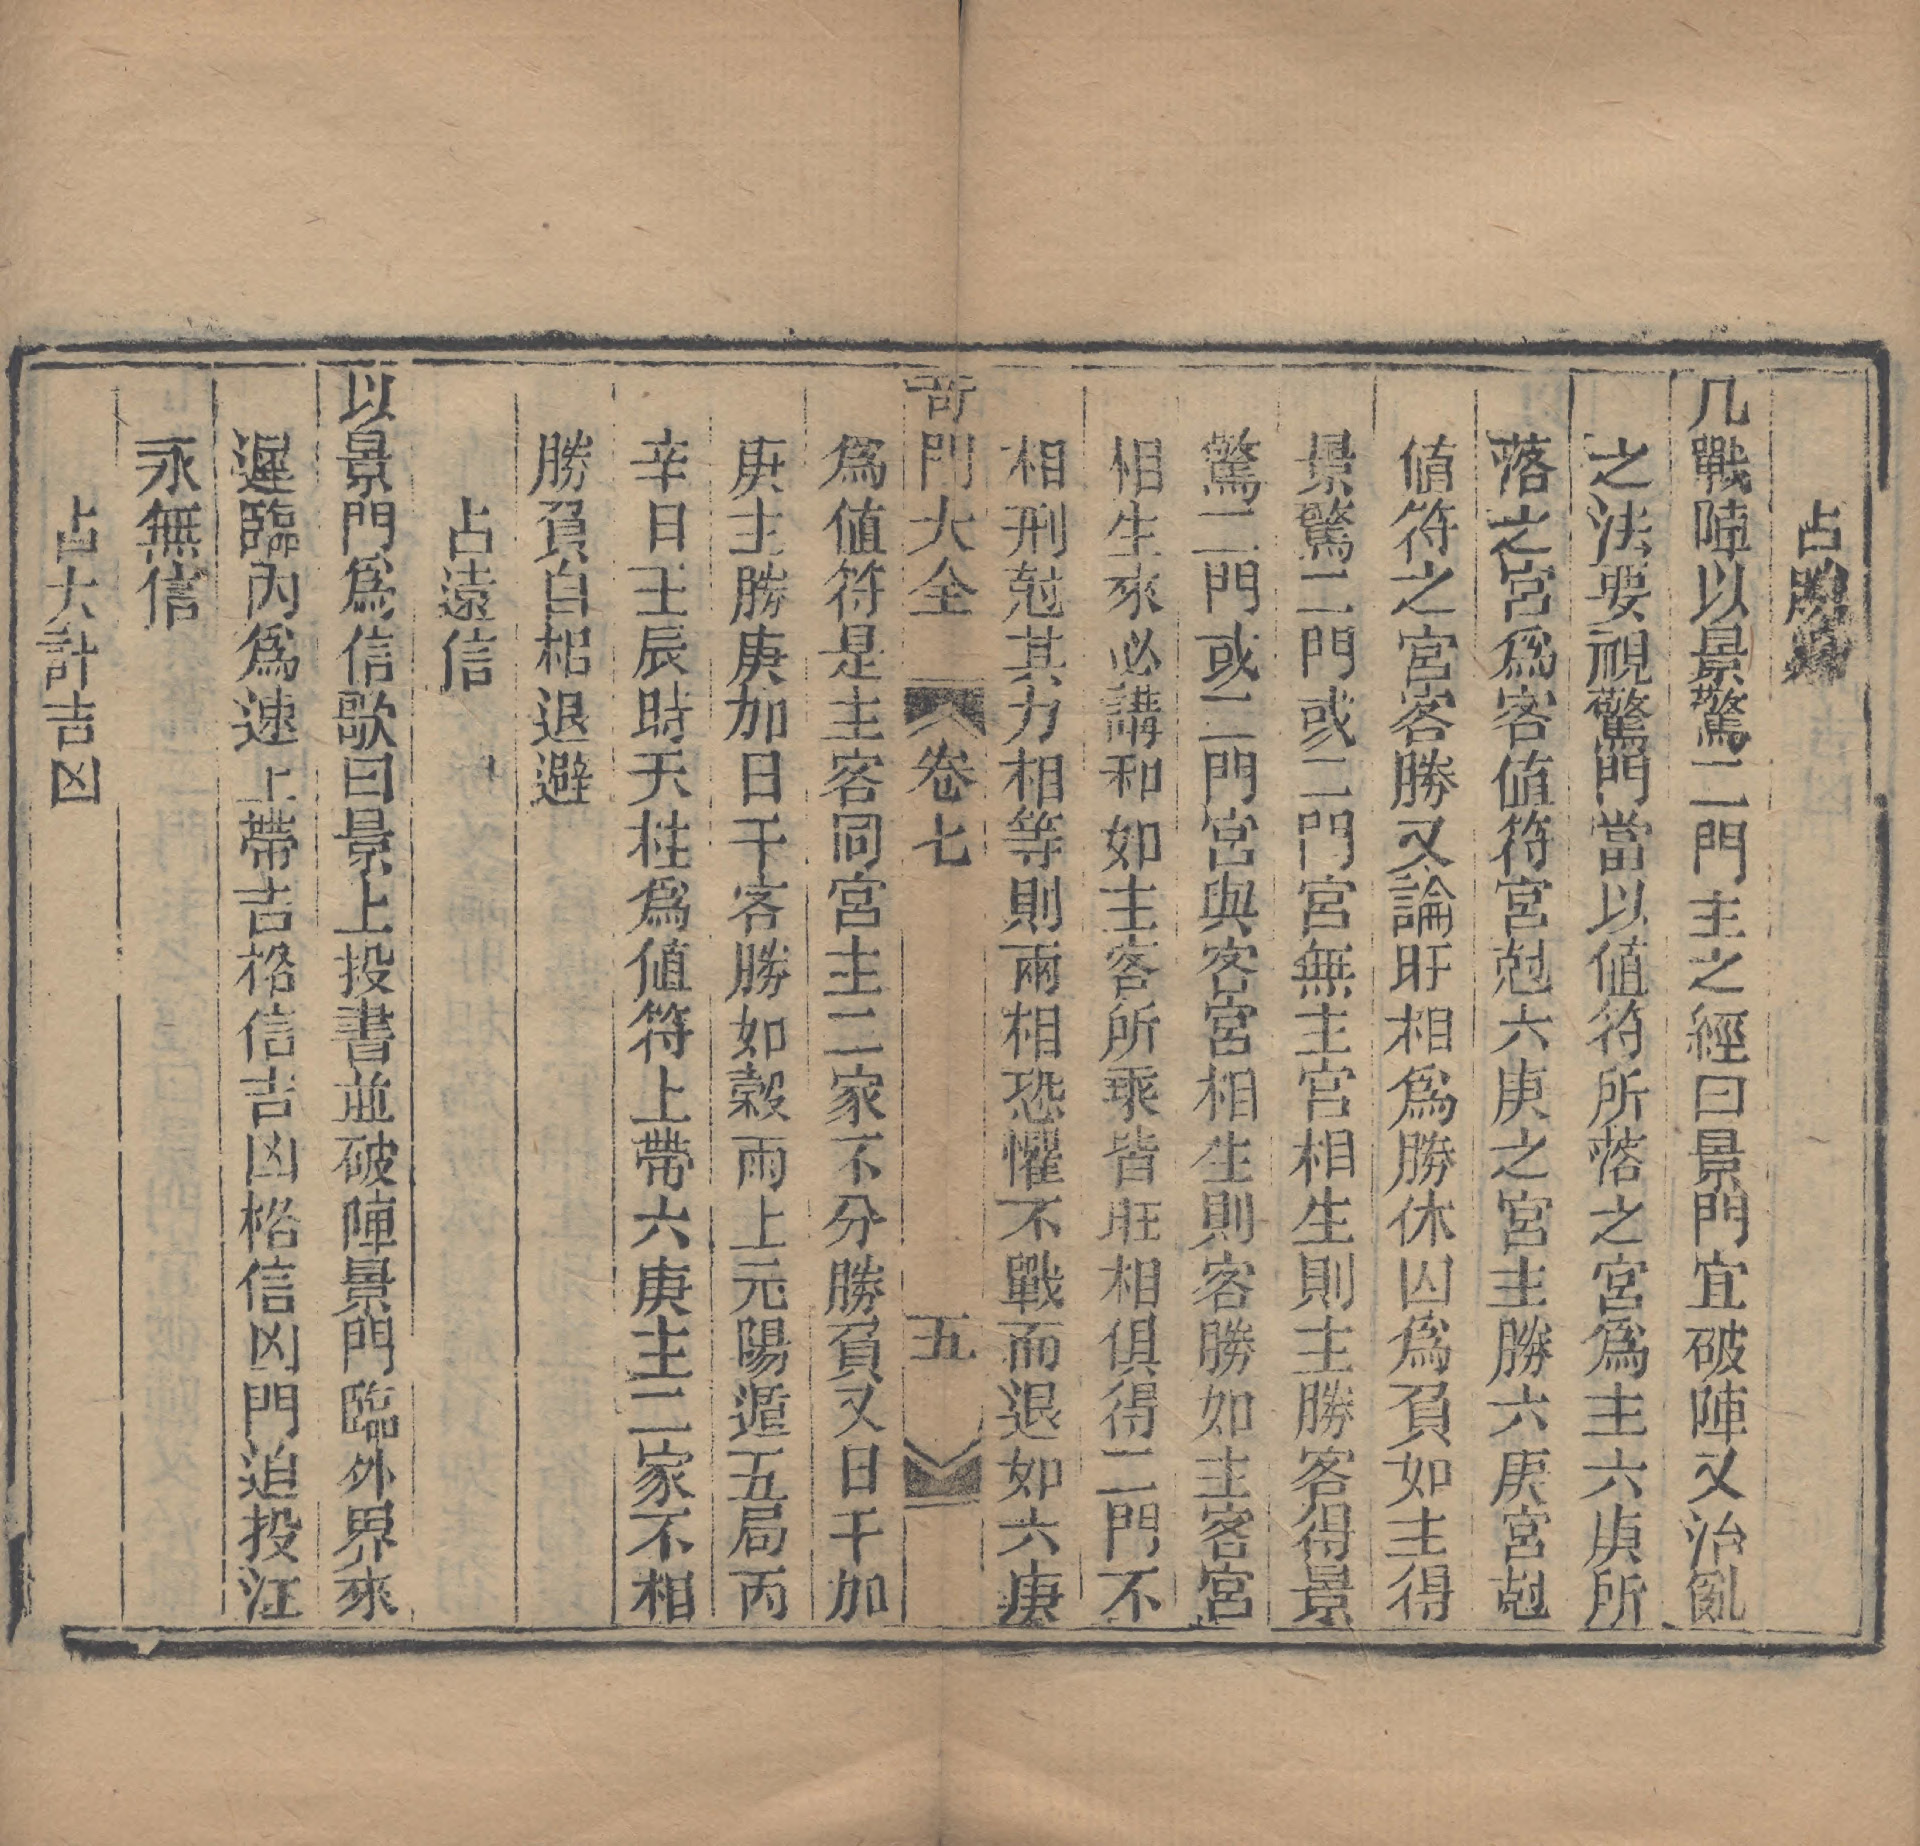 占勝負
凡戰陣以景驚二門主之經曰景門宜破陣又治亂
之法要視驚門當以値符所落之宮爲主六庚所
落之宮爲客値符宮尅六庚之宮主勝六庚宮尅
値符之宮客勝又論旺相爲勝休囚爲負如主得
景驚二門或二門宮無主宮相生則主勝客得景
驚二門或二門宮與客宮相生則客勝如主客宮
相生來必講和如主客所乘皆旺相俱得二門不
相刑尅其力相等則兩相恐懼不戰而退如六庚
奇門大全 卷七 五
爲値符是主客同宮主二家不分勝負又日干加
庚主勝庚加日干客勝如穀雨上元陽遁五局丙
辛日壬辰時天柱爲値符上帶六庚主二家不相
勝負自相退避
占遠信
以景門爲信歌曰景上投書並破陣景門臨外界來
遲臨內爲速上帶吉格信吉凶格信凶門迫投江
永無信
占大計吉凶